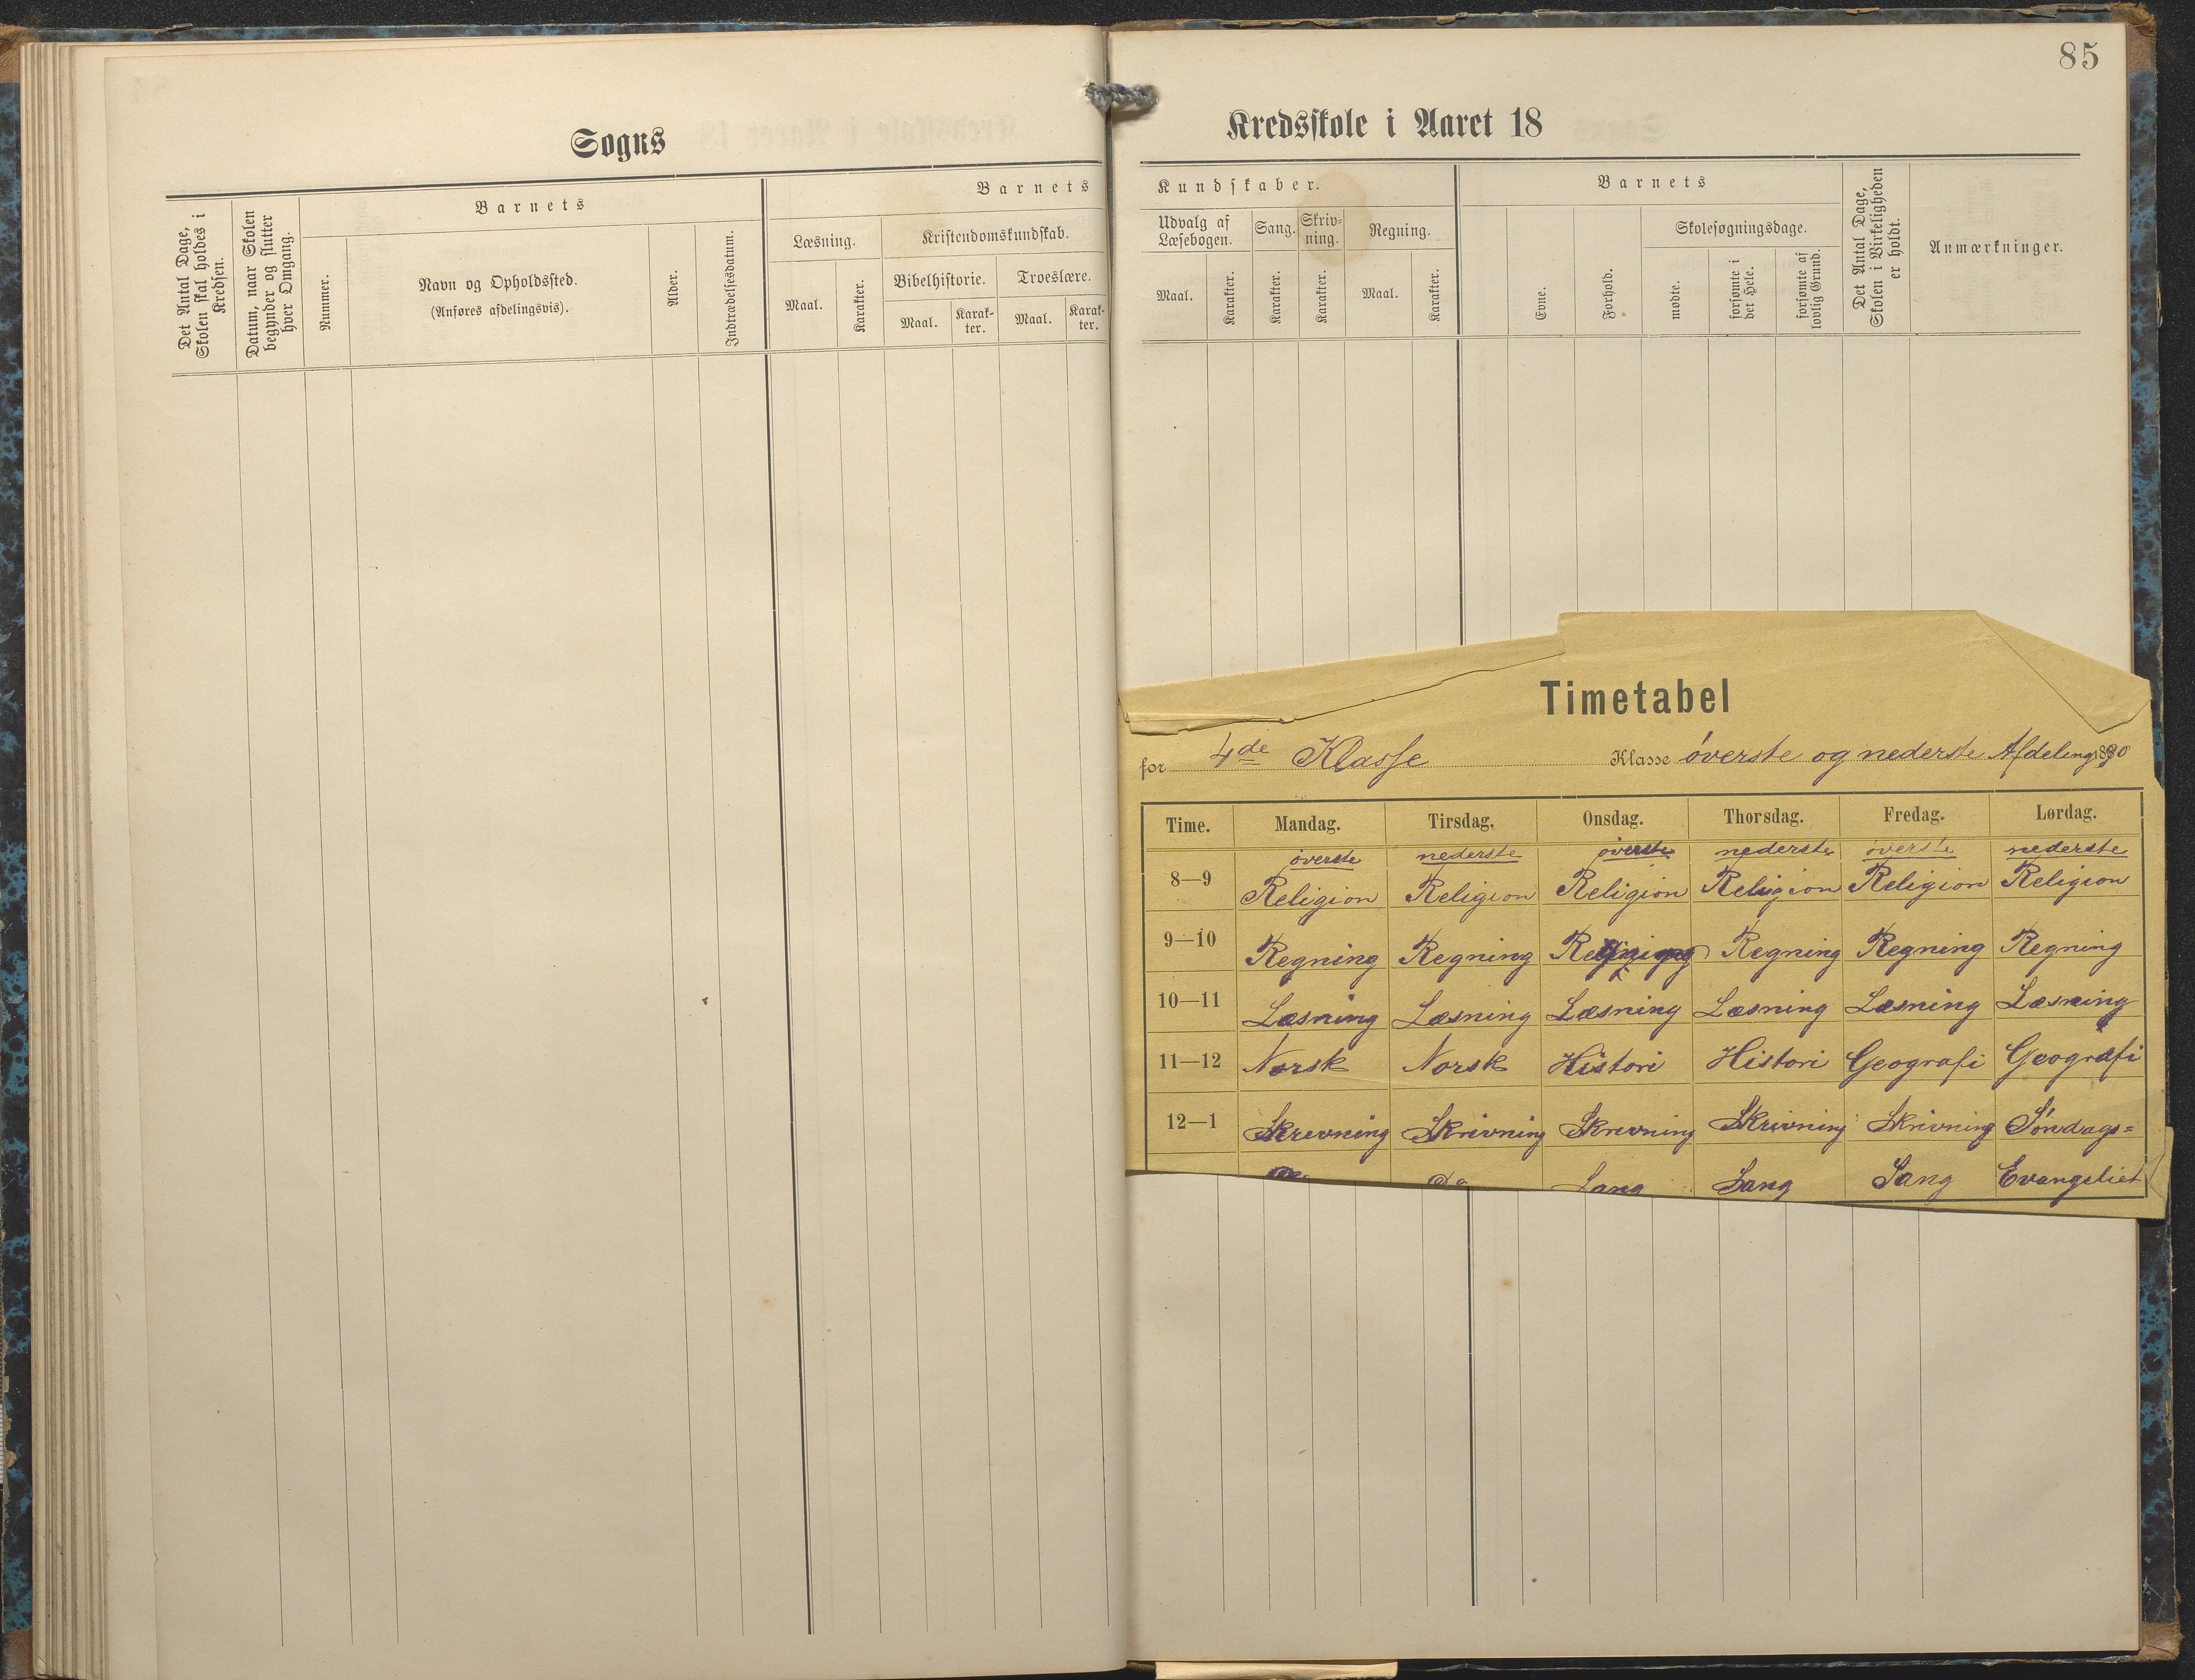 85
Sogns
Kredsskole i Aaret 18
Det Antal Dage,
Skolen skal holdes i
Kredsen.
Datum, naar Skolen
begynder og slutter
hver Omgang.
Barnets
Nummer.
Navn og Opholdssted.
(Anføres afdelingsvis).
Alder.
Indtrædelsesdatum.
Barnets
Læsning.
Maal.
Karakter.
Kristendomskundskab.
Bibelhistorie.
Troeslære.
Maal.
Karak-
ter.
Maal.
Karak-
ter.
Kundskaber.
Udvalg af
Læsebogen.
Sang.
Skriv-
ning.
Regning.
Maal.
Karakter.
Karakter.
Karakter.
Maal.
Karakter.
Barnets
Evne.
Forhold.
Skolesøgningsdage.
mødte.
forsømte i
det Hele.
forsømte af
lovlig Grund.
Det Antal Dage,
Skolen i Virkeligheden
er holdt.
Anmærkninger.
Timetabel
for 4de Klasse Klasse överste og nederste Afdeling 1890
Time. Mandag. Tirsdag. Onsdag. Thorsdag. Fredag. Lørdag.
överste nederste överste nederste överste nederste
8—9 Religion Religion Religion Religion Religion Religion
9—10 Regning Regning Regning Regning Regning Regning
10—11 Læsning Læsning Læsning Læsning Læsning Læsning
11—12 Norsk Norsk Histori Histori Geografi Geografi
12—1 Skrivning Skrivning Skrivning Skrivning Skrivning Söndags=
Sang Sang Sang Evangeliet